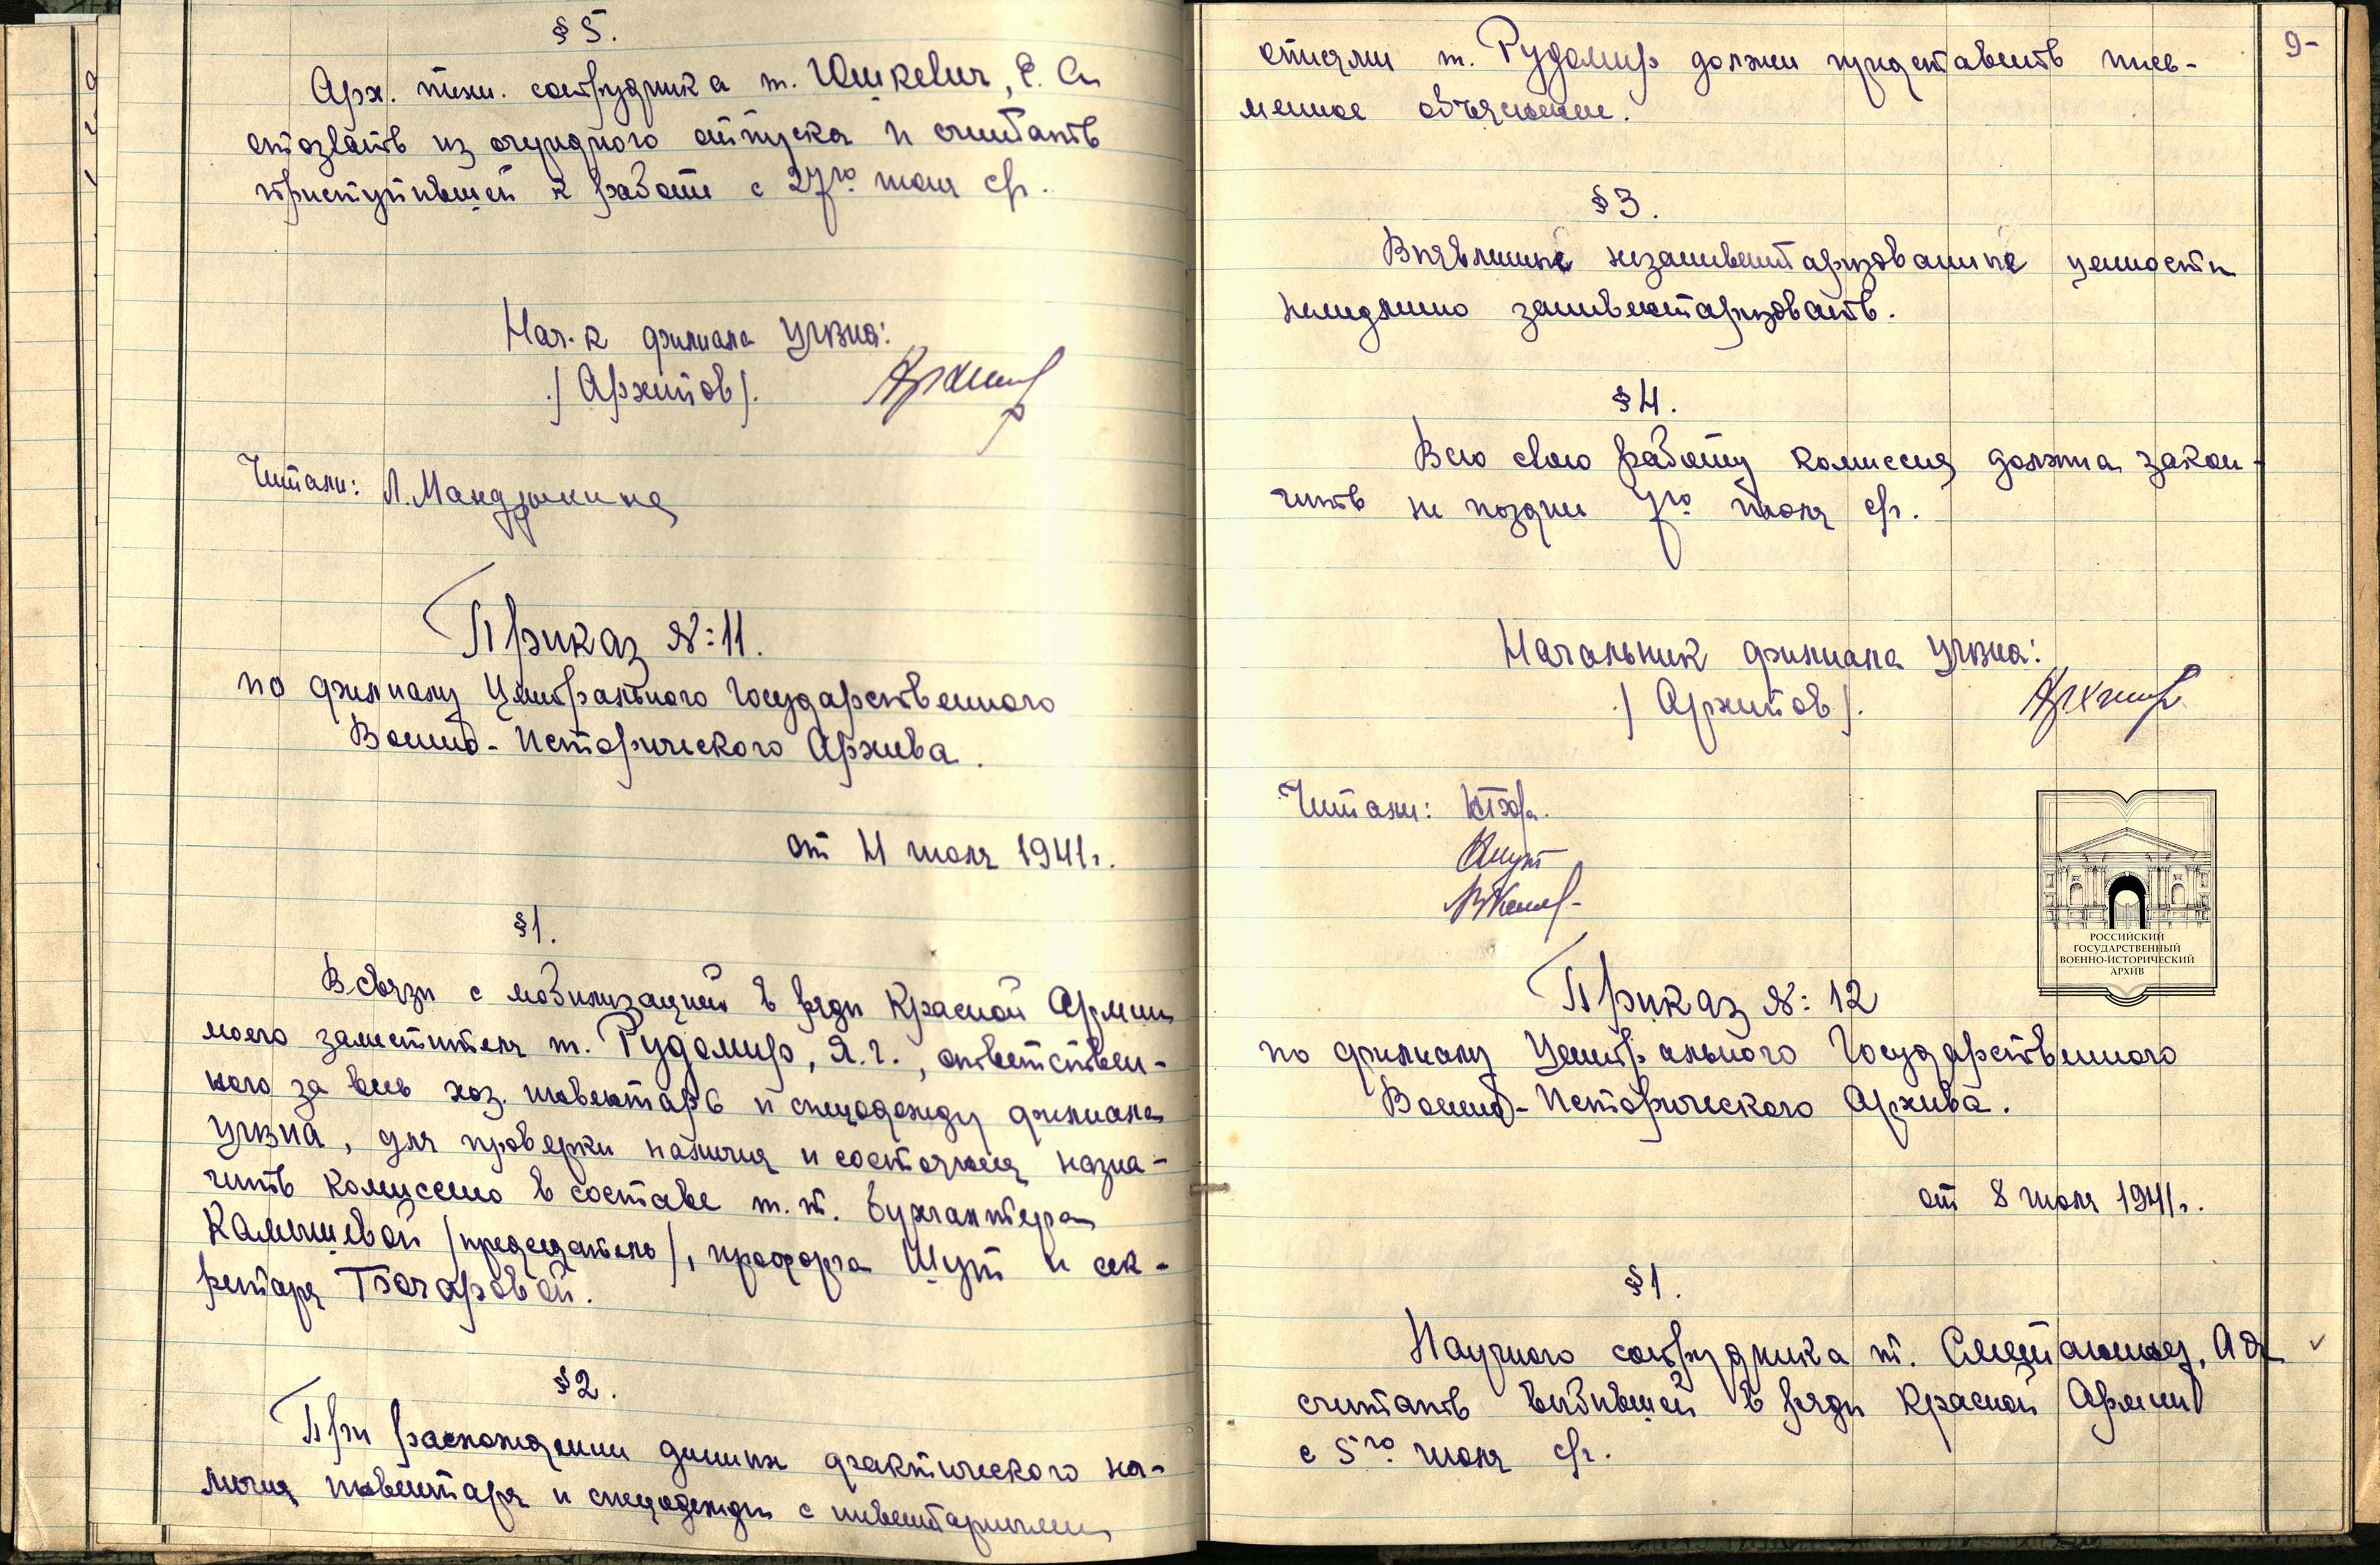 § 5.
Арх. техн. сотрудника т. Юшкевич, Е. Си
отозвать из очередного отпуска и считать
приступившей к работе с 27го июня с/г.
Нач-к филиала УЧВИА:
/Архипов/.
Читали: Л. Мандрыкина
Приказ №: 11.
по филиалу Центрального Государственного
Военно-Исторического Архива.
от 4 июля 1941г.
§ 1.
В связи с мобилизацией в ряды Красной Армии
моего заместителя т. Рудомир, Я. Г., ответствен-
ного за весь хоз. инвентарь и спецодежду филиала
ЦГВИА, для проверки наличия и состояния назна-
чить комиссию в составе т.т. бухгалтера
Камышевой /председатель/, профорга Шут и сек-
ретаря Бочаровой.
§ 2.
При расхождении данных фактического на-
личия инвентаря и спецодежды с инвентарными
9-
описями т. Рудомир должен представить пись-
менное объяснение.
§ 3.
Выявленные незаинвентаризованные ценности
немедленно заинвентаризовать.
§ 4.
Всю свою работу комиссия должна закон-
чить не позднее 7го июля с/г.
Начальник филиала ЦГВИА:
/Архипов/.
Читали:
Приказ №: 12
по филиалу Центрального Государственного
Военно-Исторического Архива.
от 8 июля 1941г.
§ 1.
Научного сотрудника т. Сметанину,
считать выбывшей в ряды Красной Армии
с 5го июля с/г.
РОССИЙСКИЙ
ГОСУДАРСТВЕННЫЙ
ВОЕННО-ИСТОРИЧЕСКИЙ
АРХИВ